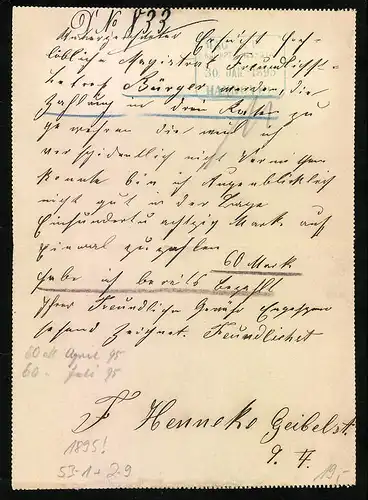 D. No 833
Unterzeichneter Ersucht Hoch-
löbliche Magistrat Freundlichst
betreff Bürger werden, die
30. JAN. 1895
Zahlung in drei Raten zu
gewehren die weil ich
nicht
konnte bin ich Augenblicklich
nicht gut in der Lage
Einhundertu achtzig Mark auf
Einmal zu zahlen
60 Mark
habe ich bereits bezahlt
Ihrer Freundliche Gewähr Entgegen
sehend Zeichnet. Freundlichst
60 M April 95
60 - Juli 95
F Henneke Geibelst.
9. II.
1895!
53-1+2-9
19,-